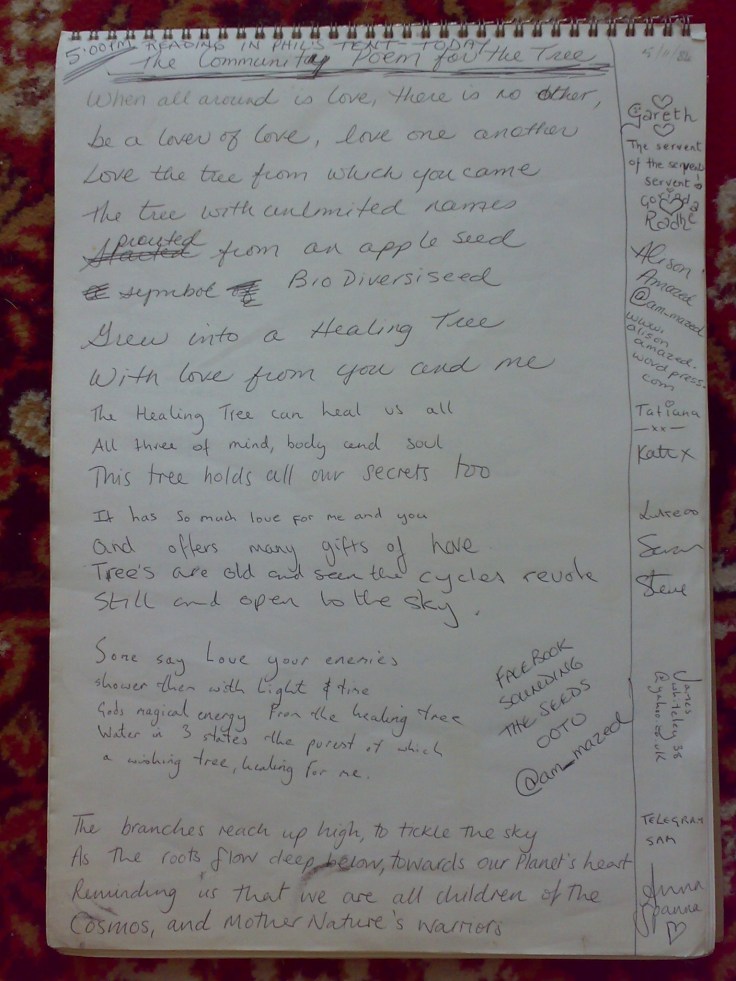 5:00PM READING IN PHIL'S TENT - TODAY
The Community Poem for the Tree
When all around is love, there is no other,
be a lover of love, love one another
Love the tree from which you came
the tree with unlimited names
Sprouted from an apple seed
symbol Bio Diversiseed
Grew into a Healing Tree
With love from you and me
The Healing Tree can heal us all
All three of mind, body and soul
This tree holds all our secrets too
It has so much love for me and you
and offers many gifts of
Tree's are old and seen the cycles
Still and open to the sky.
Some say Love your enemies
shower them with Light & time
Gods magical energy from the healing tree
Water in 3 states the purest of which
a wishing tree, healing for me.
FACEBOOK
SOUNDING
THE SEEDS
OOTO
@am_mazed
The branches reach up high, to tickle the sky
As the roots flow deep below, towards our Planet's heart
Reminding us that we are all children of the
Cosmos, and Mother Nature's warriors
Gareth
The servent
of the servent
servent
Radhe
Alison
Amazed
@am_mazed
www.
alison
amazed.
wordpress.
com
Tatiana
—xx—
Kate x
Luke
Sarah
Steve
James
whiteley 38
TELEGRAM
SAM
Anna
Joanna